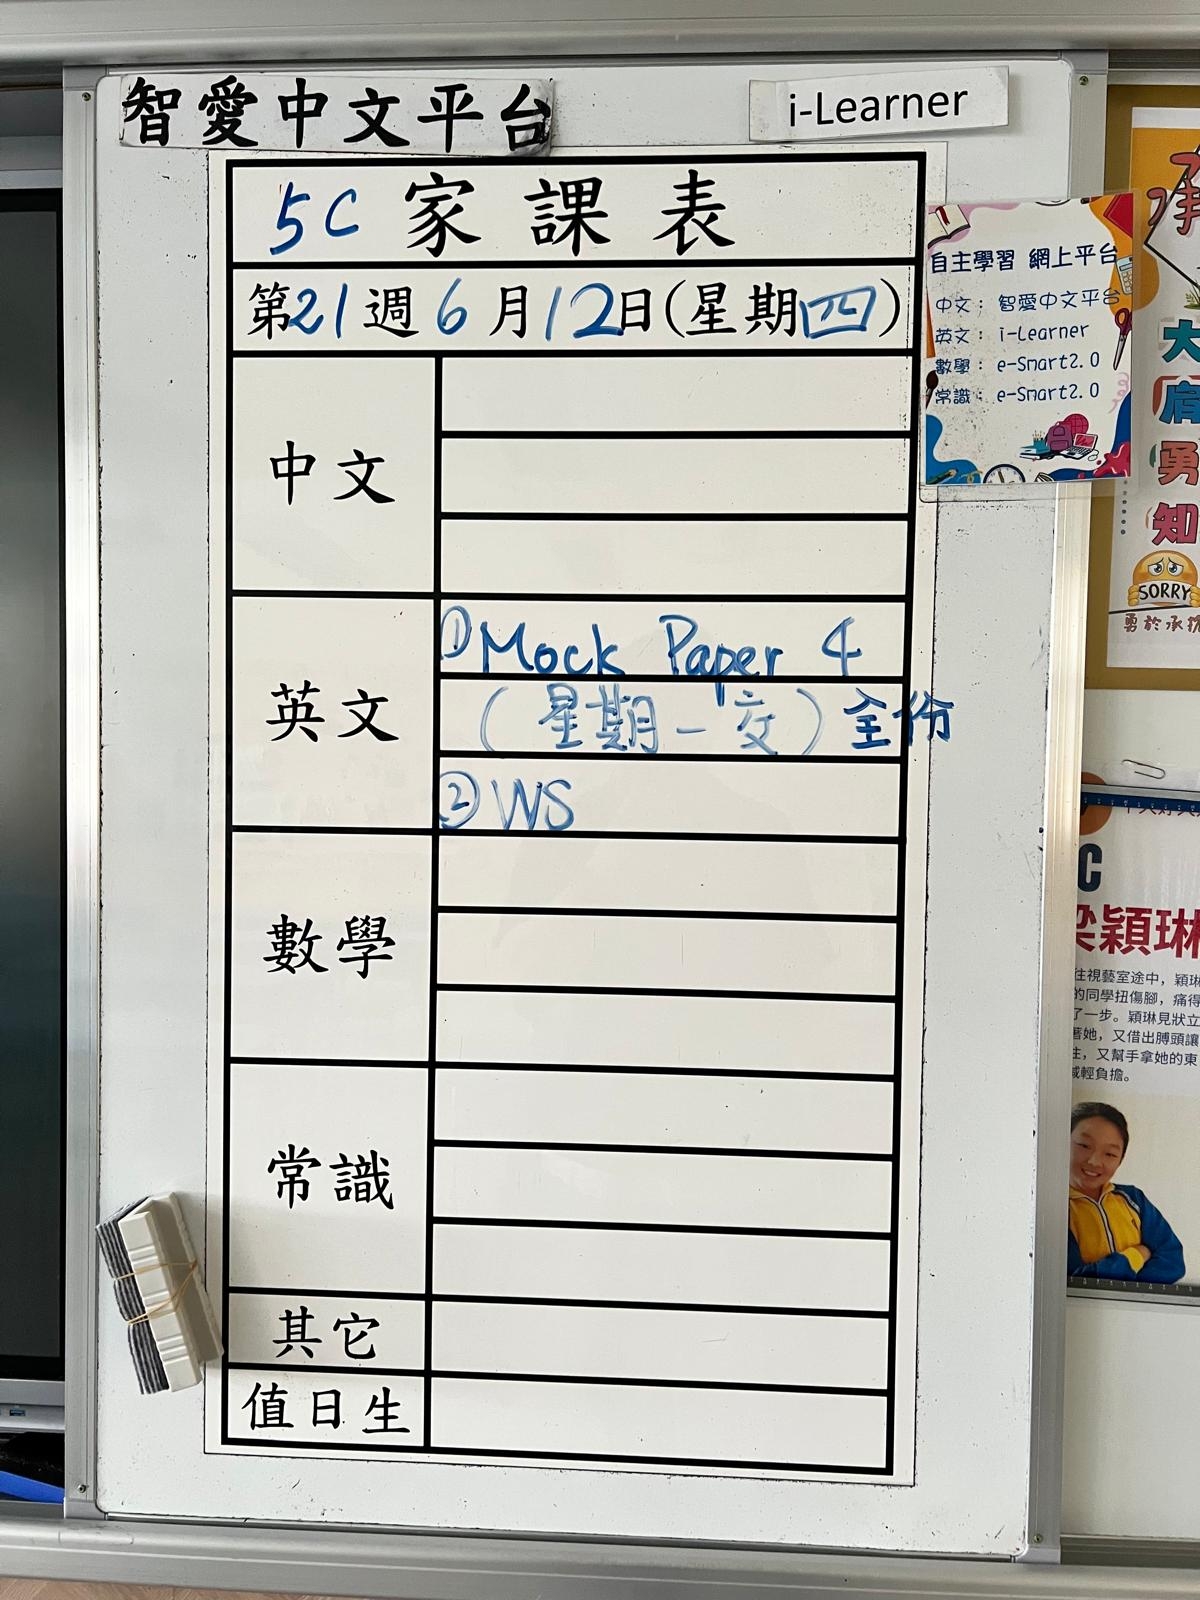 智愛中文平台
i-Learner
5C 家課表
第21週6月12日(星期四)
中文
英文
①Mock Paper 4
(星期一交)全份
②WS
數學
常識
其它
值日生
自主學習 網上平台
中文： 智愛中文平台
英文： i-Learner
數學： e-Smart2.0
常識： e-Smart2.0
大
肩
勇
知
SORRY
勇於承
C
梁穎琳
往視藝室途中，穎琳
的同學扭傷腳，痛得
了一步。穎琳見狀立
著她，又借出膊頭讓
住，又幫手拿她的東
減輕負擔。